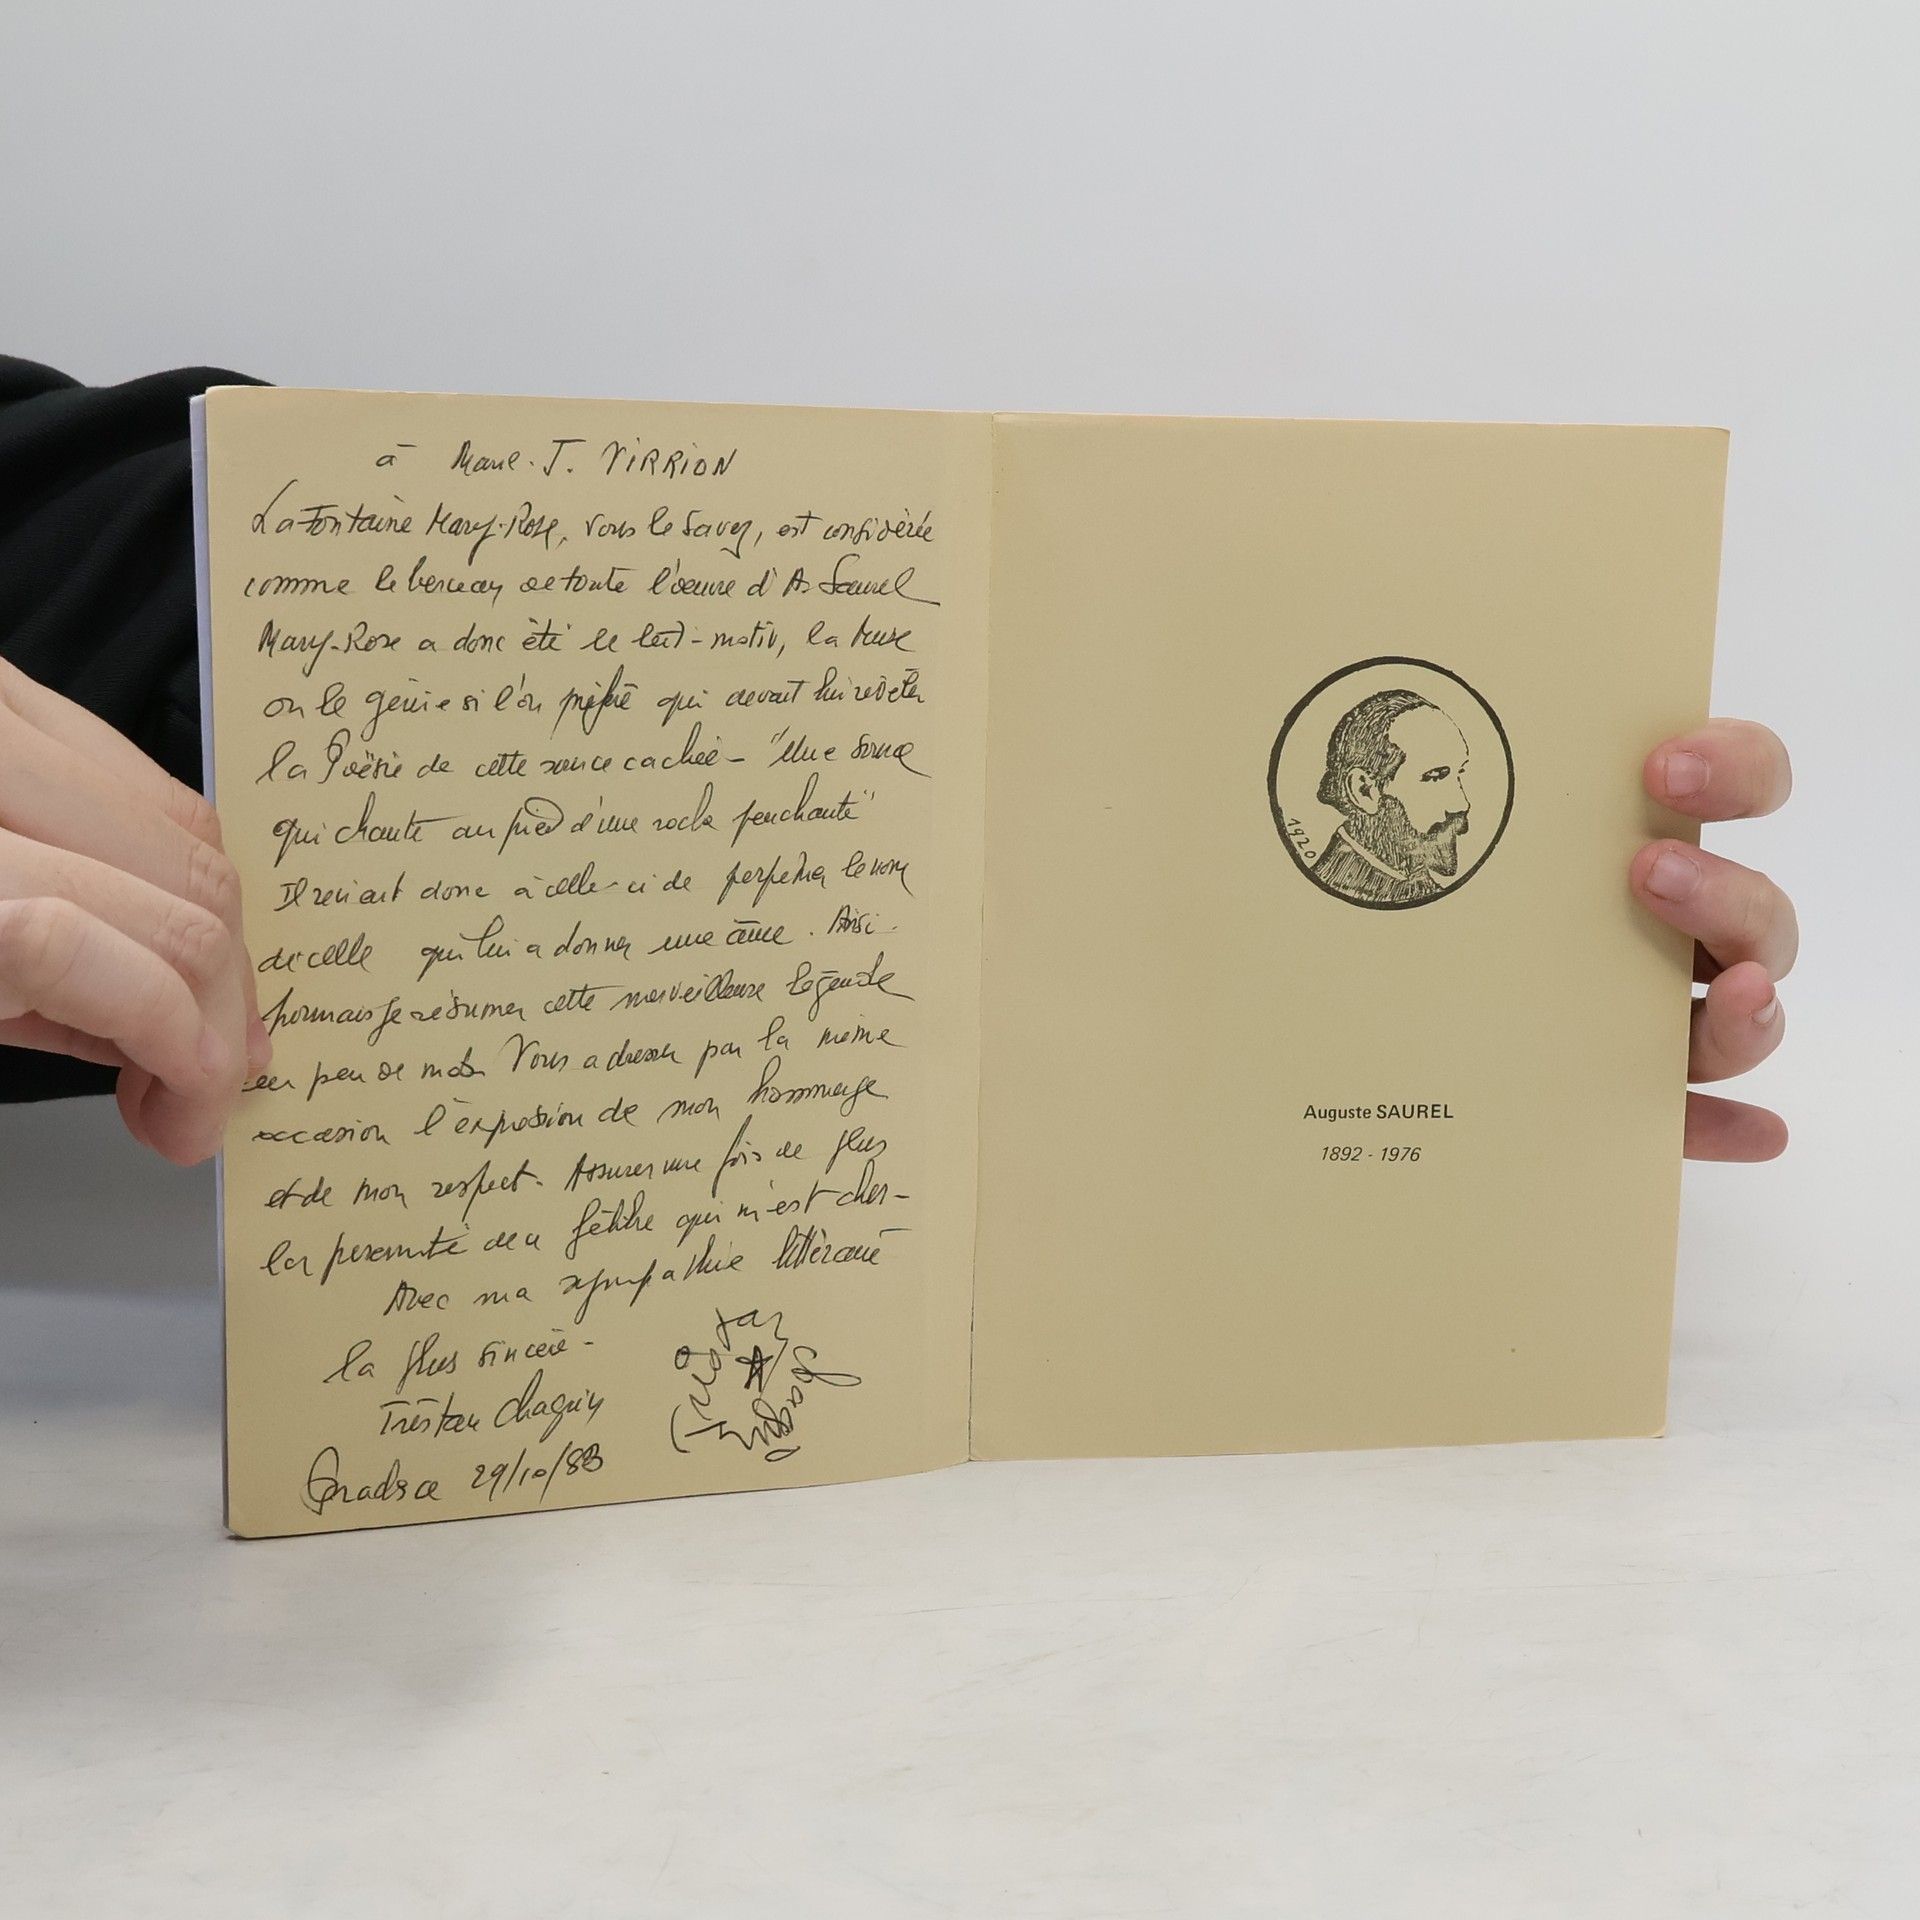 à Marie-J. VIRRION
La Fontaine Mary-Rose, vous le savez, est considérée
comme le berceau de toute l'oeuvre d'A. Saurel
Mary-Rose a donc été le leit-motiv, la Muse
ou le génie si l'on préfère qui devait lui révéler
la Poësie de cette source cachée - "Une source
qui chante au pied d'une roche penchante"
Il revient donc à celle-ci de perpétuer le nom
de celle qui lui a donner une âme. Ainsi
pourrais je résumer cette merveilleuse Légende
en peu de mots. Vous adresser par la même
occasion l'expression de mon hommage
et de mon respect. Assurer une fois de plus
la perennité de a qui m'est cher -
Avec ma sympathie littéraire
la plus sincère -
Tristan Chagny
29/10/83
Tristan
Chagny
1920
Auguste SAUREL
1892 - 1976